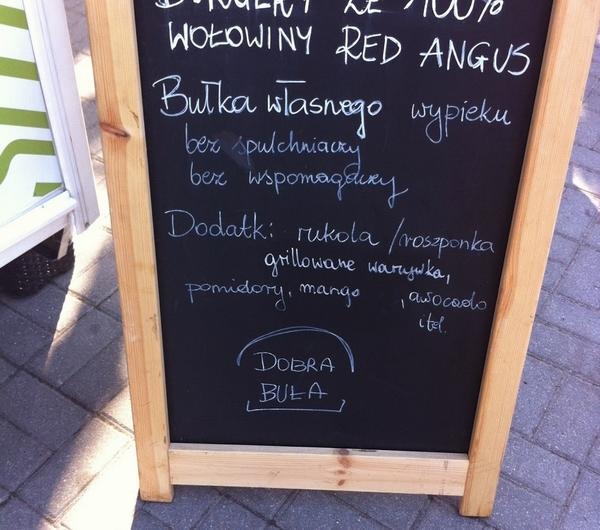 BURGERY ZE 100%
WOŁOWINY RED ANGUS
Bułka własnego wypieku
bez spulchniaczy
bez wspomagaczy
Dodatk: rukola / roszponka
grillowane warzywka,
pomidory, mango , awocado
itd.
DOBRA
BUŁA